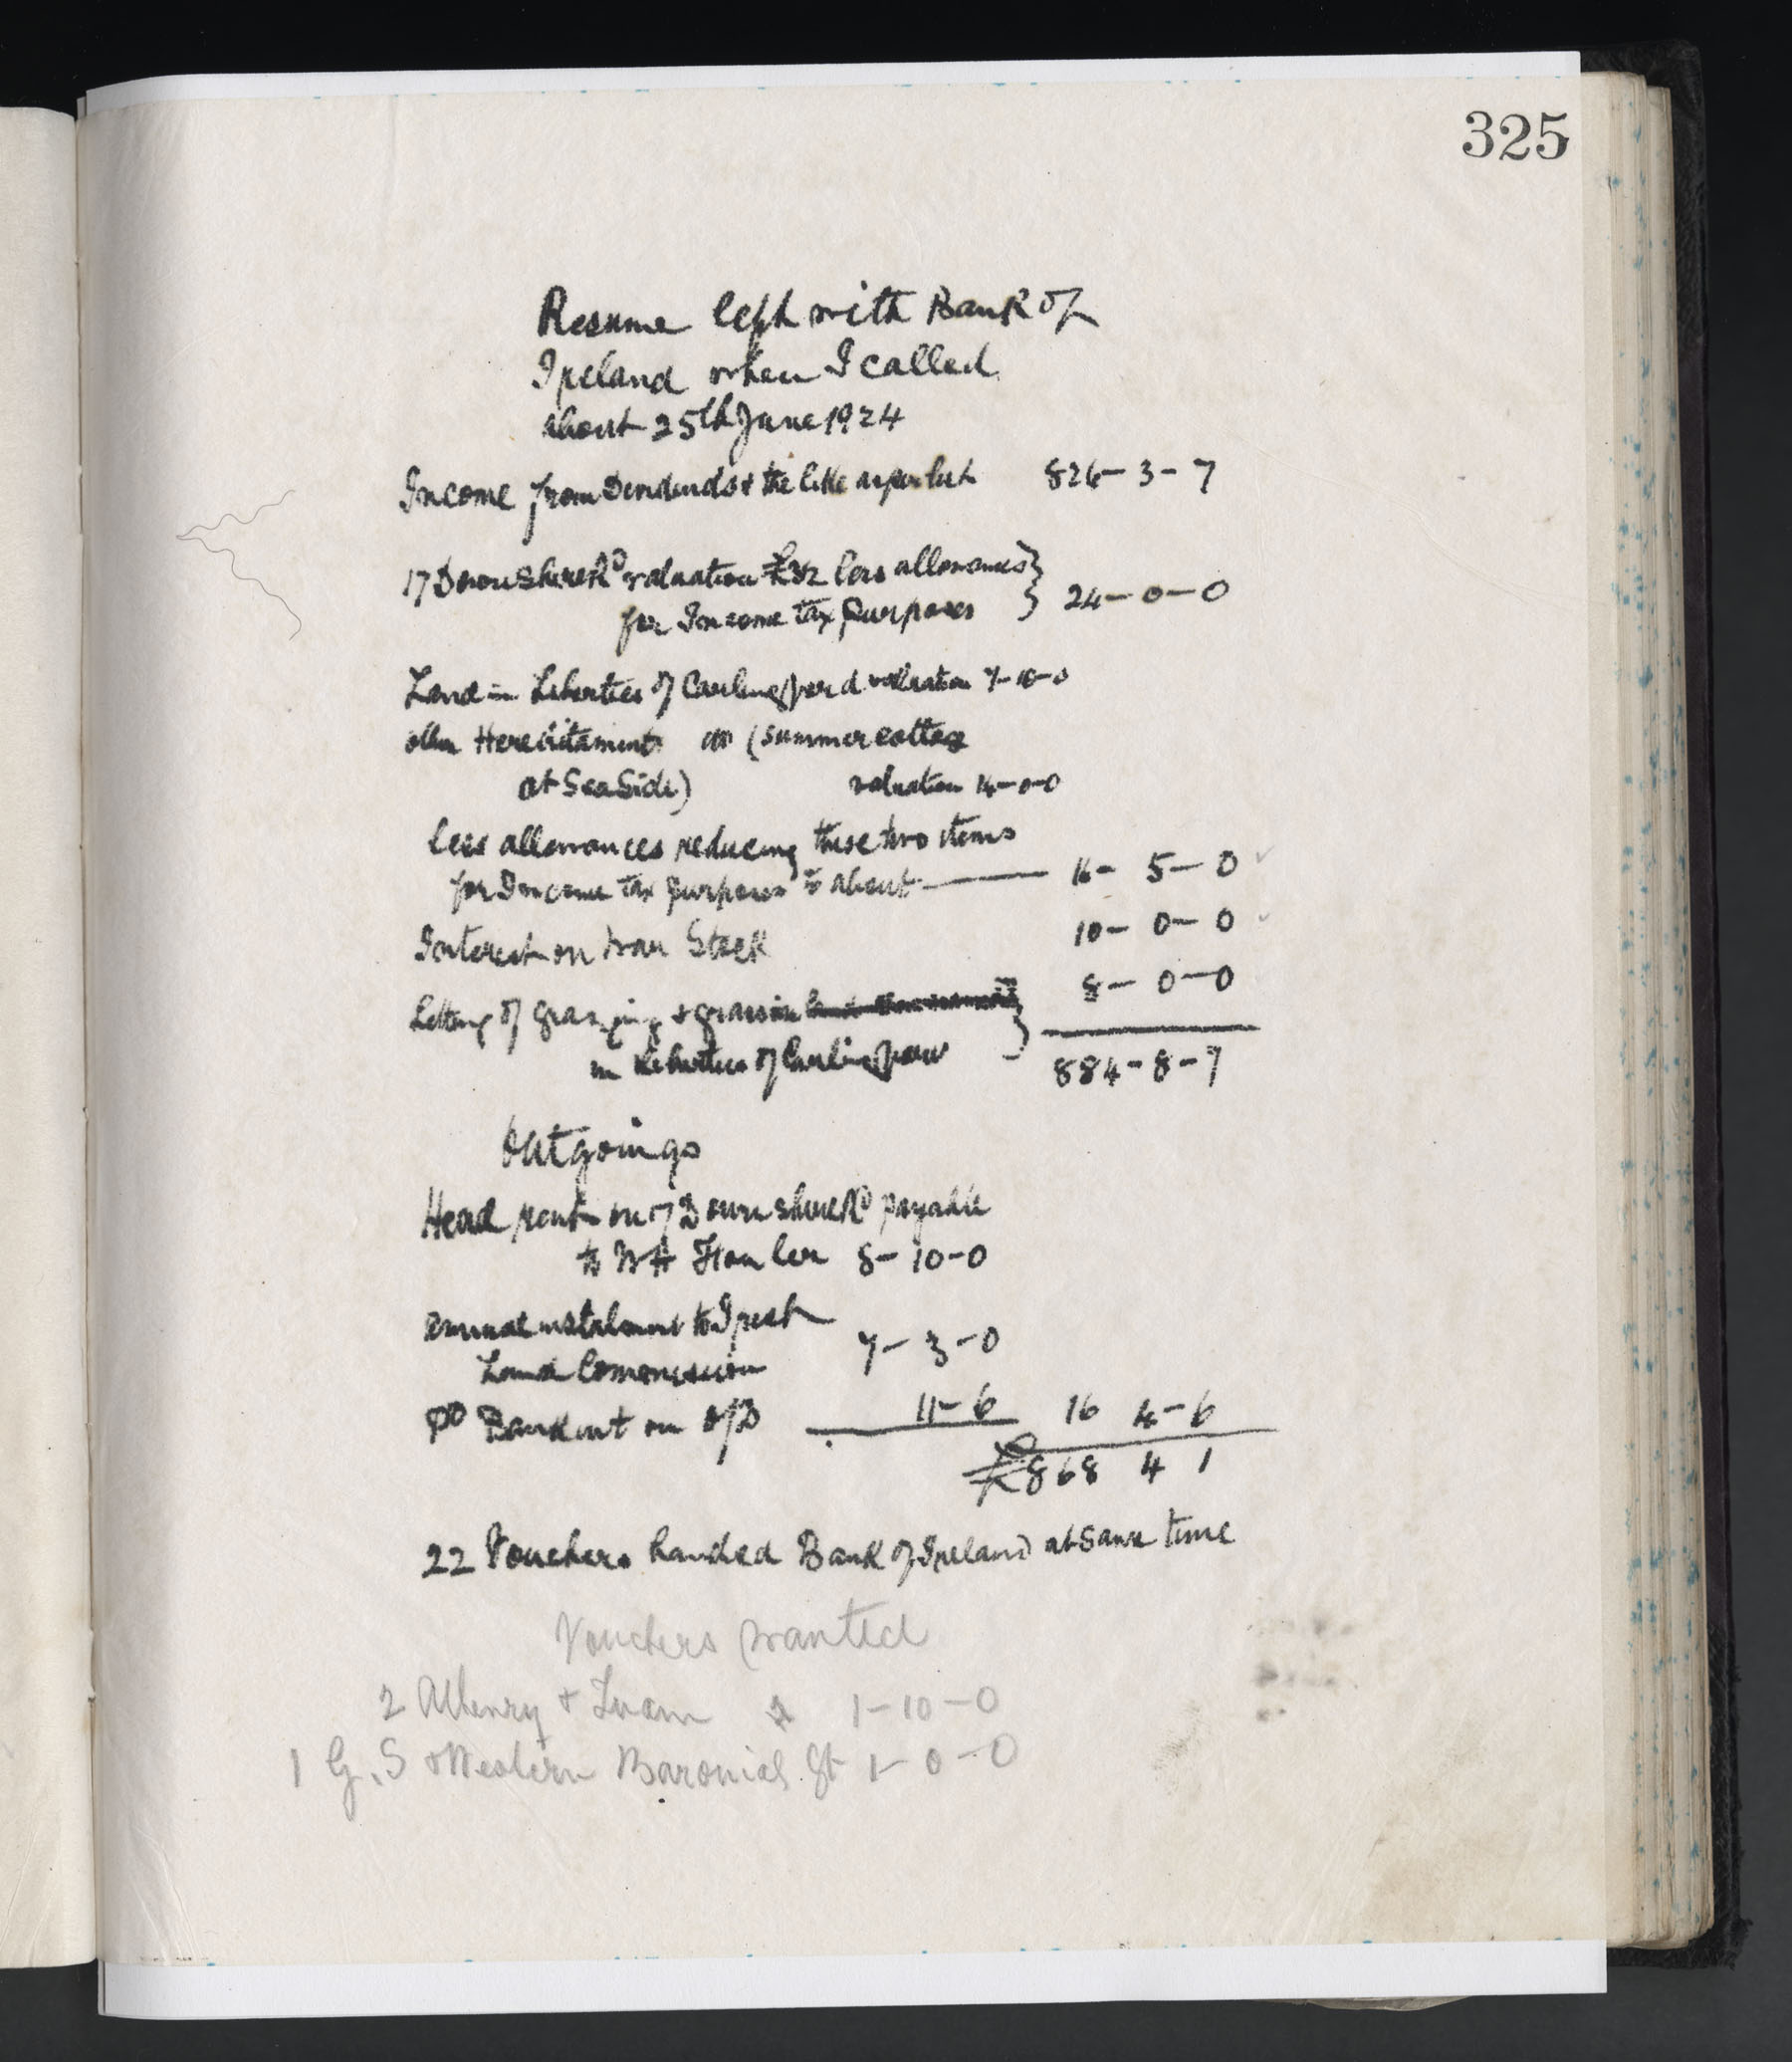 325
Resume left with Bank of
Ireland when I called
about 25th June 1924
Income from Dividends & the like as per list 826-3-7
17 Devonshire Rd valuation £32 less allowances
for Income tax purposes } 24-0-0
Land in Liberties of Carlingford valuation 7-10-0
other Hereditaments do (summer cottage
at SeaSide) valuation 14-0-0
less allowances reducing these two items
for Income tax purposes to about 16- 5-0
Interest on War Stock 10- 0-0
Letting of grazing & in Liberties of Carlingford } 8-0-0
884-8-7
Outgoings
Head rent on 17 Devonshire Rd payable
to WH Fowler 8-10-0
annual instalment to Irish
Land Commission 7-3-0
Pd Bank int on o/D 11-6 16 4-6
£868 4 1
22 Vouchers handed Bank of Ireland at same time
Vouchers wanted
2 Athenry & Tuam 1-10-0
1 G. S & Western Baronial St 1-0-0